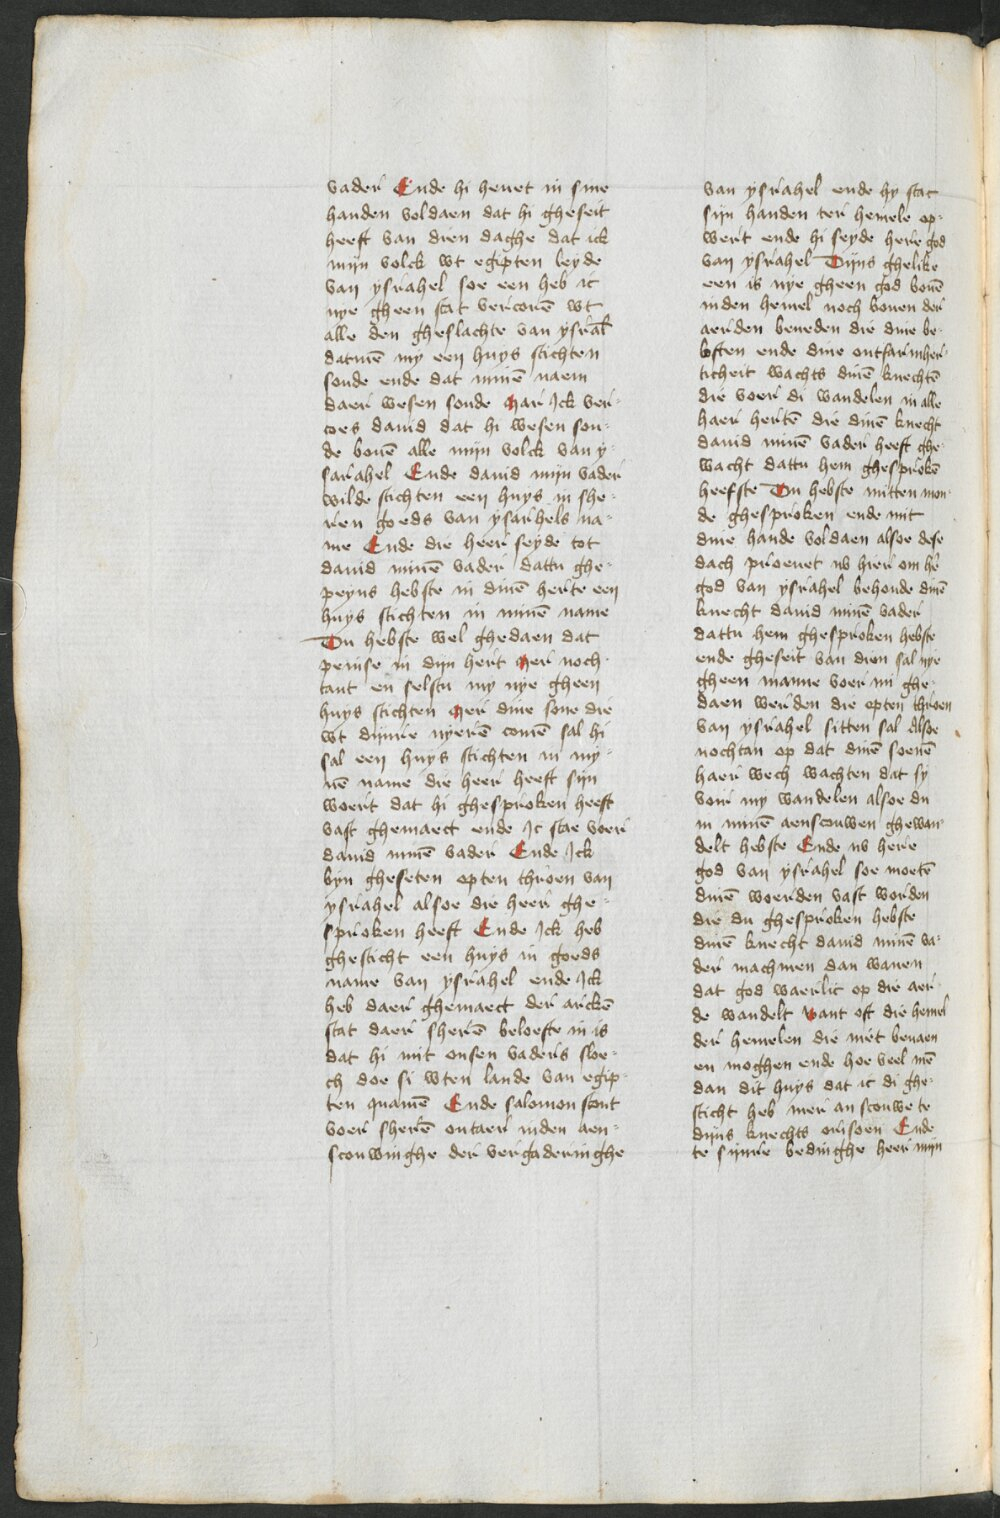 vader Ende hi hevet in sine
handen voldaen dat hi gheseit
heeft van dien daghe dat ick
mijn volck wt egipten leyde
van ysrahel soe een heb ic
nye gheen stat vercorē wt
alle den gheslachte van ysrah̄
datmē my een huys stichten
soude ende dat minē naem
daer wesen soude Mar Ick ver-
coes david dat hi wesen sou-
de bovē alle mijn volck van y-
sarahel Ende david mijn vader
wilde stichten een huys in she-
ren goeds van ysarhels na-
me Ende die heer seyde tot
david minē vader dattu ghe-
peyns hebste in dinē herte een
huys stichten in minē name
Du hebste wel ghedaen dat
peinse in dijn hert Mer noch-
tant en selstu my nye gheen
huys stichten Mer dine sone die
wt dijnre nyerē comē sal hi
sal een huys stichten in my-
nē name die heer heeft sijn
woert dat hi ghesproken heeft
vast ghemaect ende Ic stae voer
david minē vader Ende Ick
byn gheseten opten throen van
ysrahel alsoe die heer ghe-
sproken heeft Ende Ick heb
ghesticht een huys in goeds
name van ysrahel ende Ick
heb daer ghemaect der arckē
stat daer sherē beloefte in is
dat hi mit onsen vaders sloe-
ch doe si wten lande van egip-
ten quamē Ende salomon stont
voer sherē outaer inden aen-
scouwinghe der vergaderinghe
van ysrahel ende hy stac
sijn handen ter hemele op-
wert ende hi seyde here god
van ysrahel Dijns ghelike
een is nye gheen god bovē
inden hemel noch boven der
aerden beneden die dine be-
loften ende dine ontfarmher-
ticheit wachts dinē knechtē
die voer di wandelen in alle
haer hertē die dinē knecht
david minē vader heeft ghe-
wacht dattu hem ghesprokē
heefste Du hebste mitten mon-
de ghesproken ende mit
dine hande voldaen alsoe dese
dach proevet nv hier om hē
god van ysrahel behoude dinē
knecht david minē vader
dattu hem ghesproken hebste
ende gheseit van dien sal nye
gheen manne voer mi ghe-
daen werden die opten throen
van ysrahel sitten sal Alsoe
nochtan op dat dinē soenē
haer wech wachten dat sy
voir my wandelen alsoe du
in minē aenscouwen ghewan-
delt hebste Ende nv here
god van ysrahel soe moetē
dinē woerden vast worden
die du ghesproken hebste
dinē knecht david minē va-
der machmen dan wanen
dat god waerlic op die aer-
de wandelt Want oft die hemel
der hemelen die niet bevaen
en moghen ende hoe veel mē
dan dit huys dat ic di ghe-
sticht heb mer an scouwe te
dijns knechts orisoen Ende
te sijnre bedinghe heer mijn